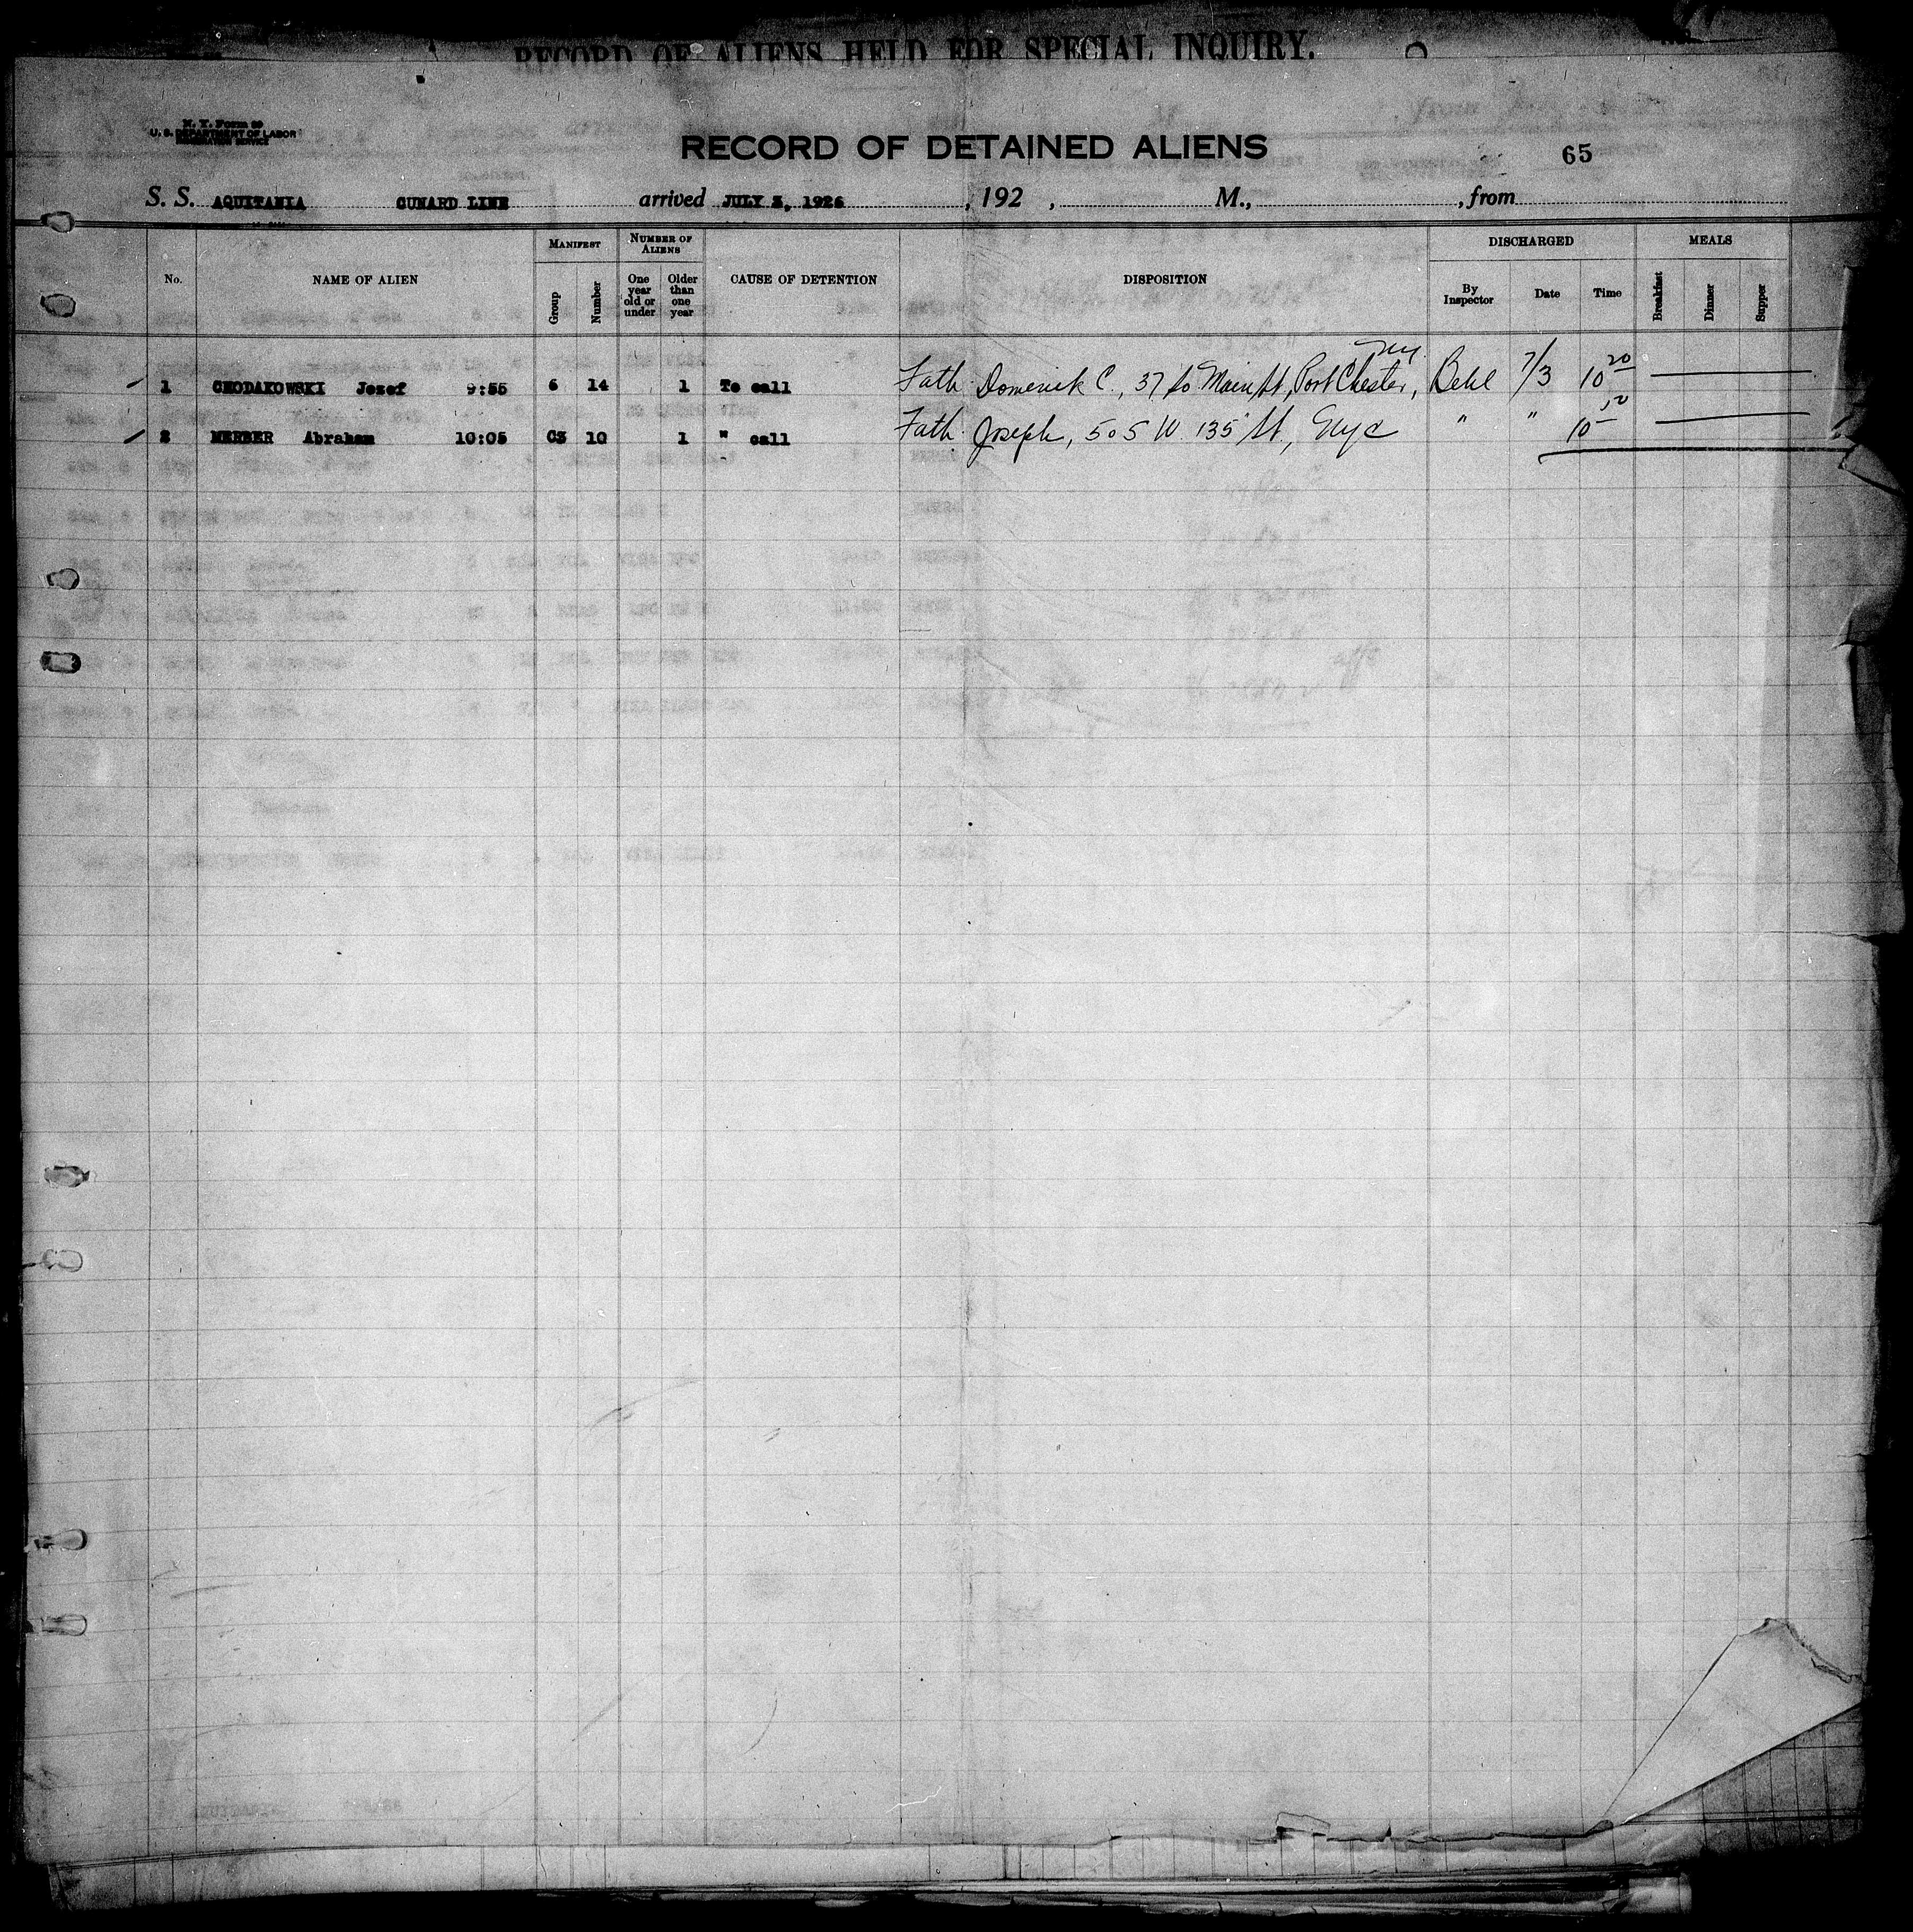 RECORD OF ALIENS HELD FOR SPECIAL INQUIRY.
N. Y. Form 99
U. S. DEPARTMENT OF LABOR
IMMIGRATION SERVICE
RECORD OF DETAINED ALIENS 65
S. S. AQUITANIA CUNARD LINE arrived JULY 3, 1926, 192 , M., , from
No. NAME OF ALIEN MANIFEST Group Number NUMBER OF ALIENS One year old or under Older than one year CAUSE OF DETENTION DISPOSITION DISCHARGED By Inspector Date Time MEALS Breakfast Dinner Supper
NY
1 CHODAKOWSKI Jozef 9:55 6 14 1 To call Fath Domenik C., 37 So Main St, Port Chester, 7/3 10 20
2 Abraham 10:05 C3 10 1 " call Fath. Joseph, 505 W. 135 St., NYC " " 10